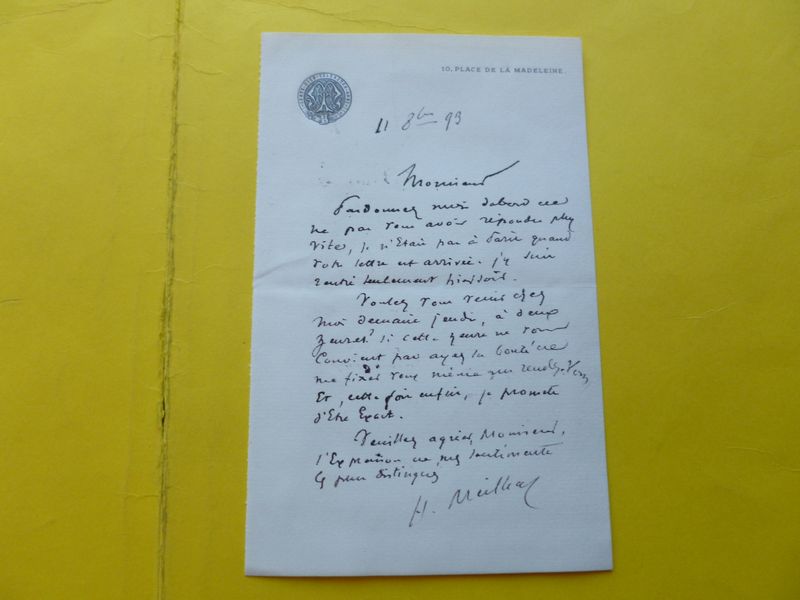 10, PLACE DE LA MADELEINE
11 8bre 93
Monsieur
Pardonnez moi d'abord de
ne pas vous avoir répondu plus
vite, je n'étais pas à Paris quand
votre lettre est arrivée. j'y suis
rentré seulement hier soir.
Voulez vous venir chez
moi demain jeudi, à deux
heures? si cette heure ne vous
convient pas ayez la bonté de
me fixer vous même un rendez-vous
Et, cette fois enfin, je promets
d'être Exact.
Veuillez agréer, Monsieur,
l'Expression de mes sentiments
les plus distingués
H. Meilhac